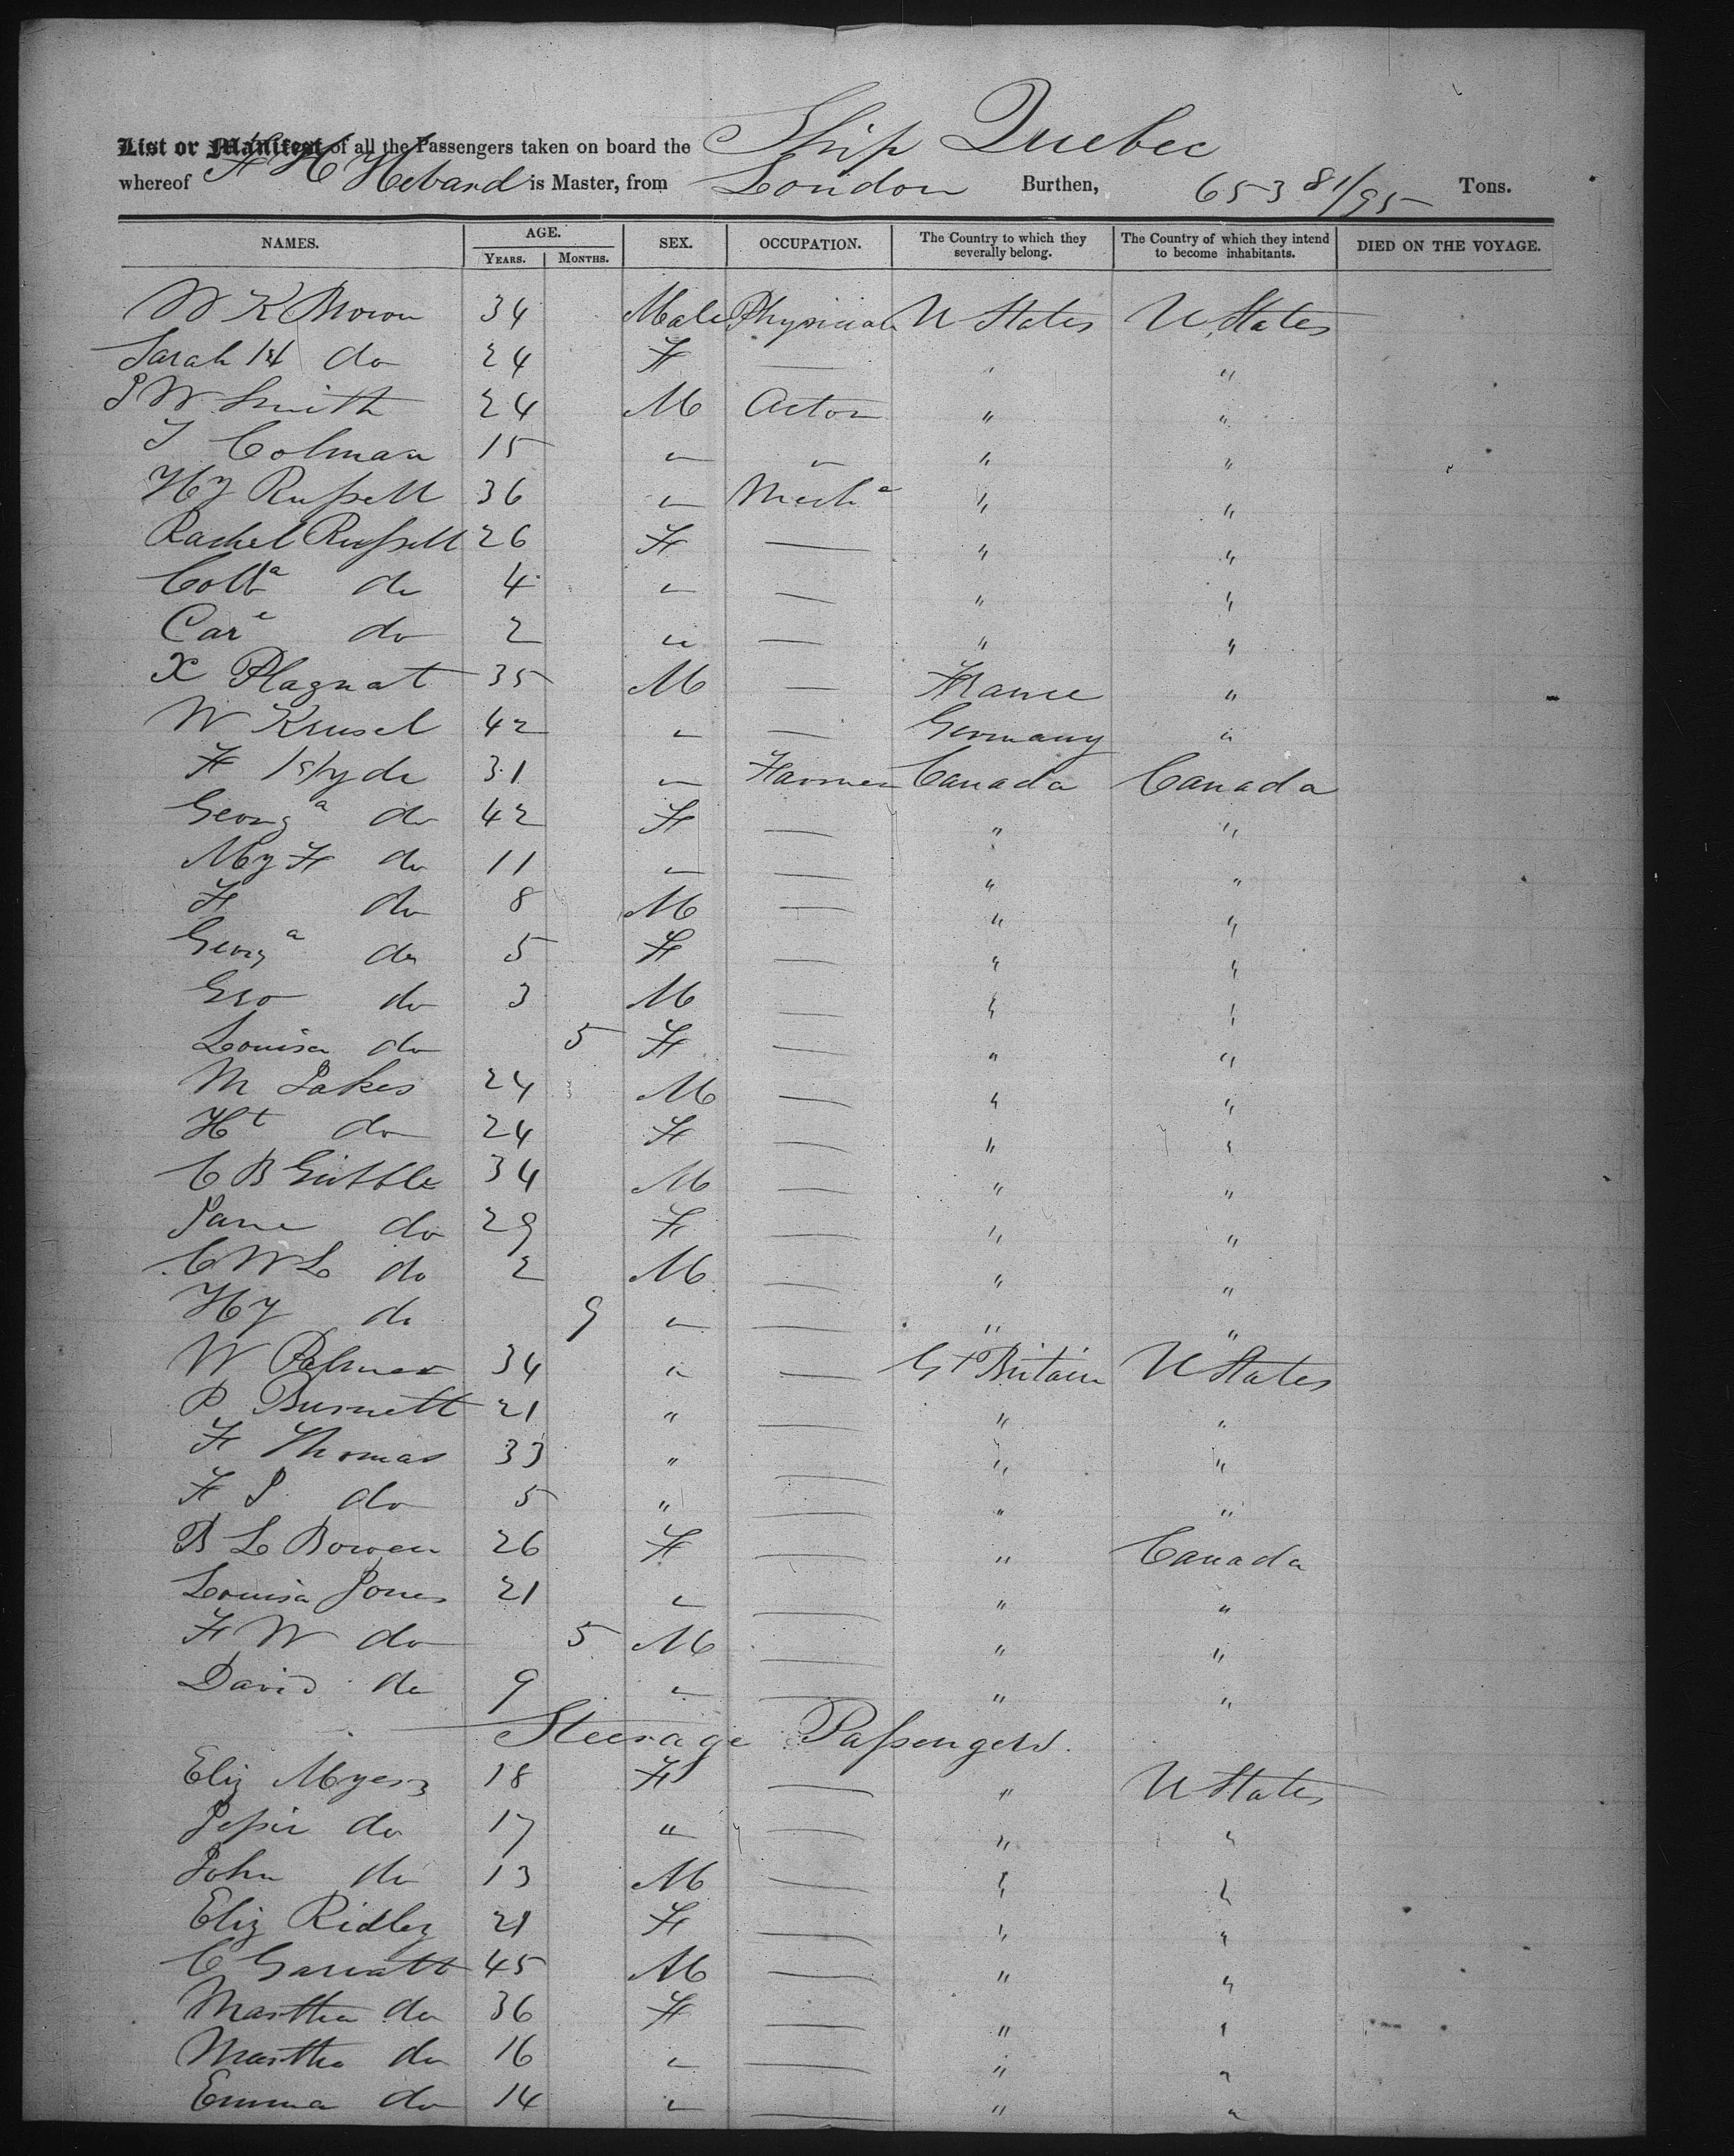 List or Manifest of all the Passengers taken on board the Ship Quebec
whereof F H Hebard is Master, from London Burthen, 653 81/95 Tons.
NAMES. AGE. SEX. OCCUPATION. The Country to which they severally belong. The Country of which they intend to become inhabitants. DIED ON THE VOYAGE.
YEARS. MONTHS.
W K Brown 34 Male Physician U States U States
Sarah H do 24 F — " "
J W Smith 24 M Actor " "
J Colman 15 " " " "
Hy Russell 36 " Mech^c " "
Rachel Russell 26 F — " "
do 4 " — " "
Car^e do 2 " — " "
X Plagnat 35 M — France "
W Krusel 42 " — Germany "
F Hyde 31 " Farmer Canada Canada
Georg^a do 42 F — " "
My F do 11 " — " "
F do 8 M — " "
Georg^a do 5 F — " "
Geo do 3 M — " "
Louisa do 5 F — " "
M Jakes 24 M — " "
H^t do 24 F — " "
C B 34 M — " "
Jane do 29 F — " "
C W L do 2 M — " "
Hy do 9 " — " "
W Palmer 34 " — Gt Britain U States
P Burnett 21 " — " "
F Thomas 33 " — " "
F J do 5 " — " "
B L Bowen 26 F — " Canada
Louisa Jones 21 " — " "
F W do 5 M — " "
David do 9 " — " "
Steerage Passengers.
Eliz Myers 18 F — " U States
Jessie do 17 " — " "
John do 13 M — " "
Eliz Ridley 21 F — " "
C Garratt 45 M — " "
Martha do 36 F — " "
Martha do 16 " — " "
Emma do 14 " — " "